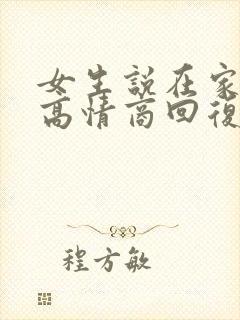 女生說在家
高情商回復
程方敏